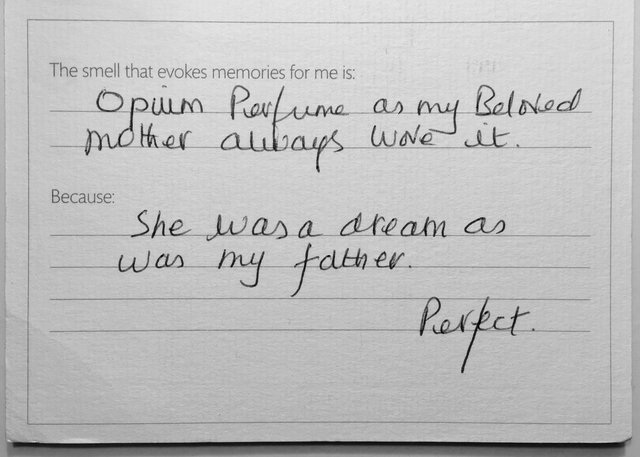 The smell that evokes memories for me is:
Opium Perfume as my Beloved
mother always wore it.
Because:
She was a dream as
was my father.
Perfect.